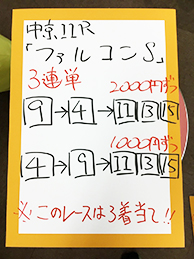 中京11R
「ファルコンS」
3連単
2000円ずつ
9→4→11 13 15
1000円ずつ
4→9→11 13 15
※このレースは3着当て!!